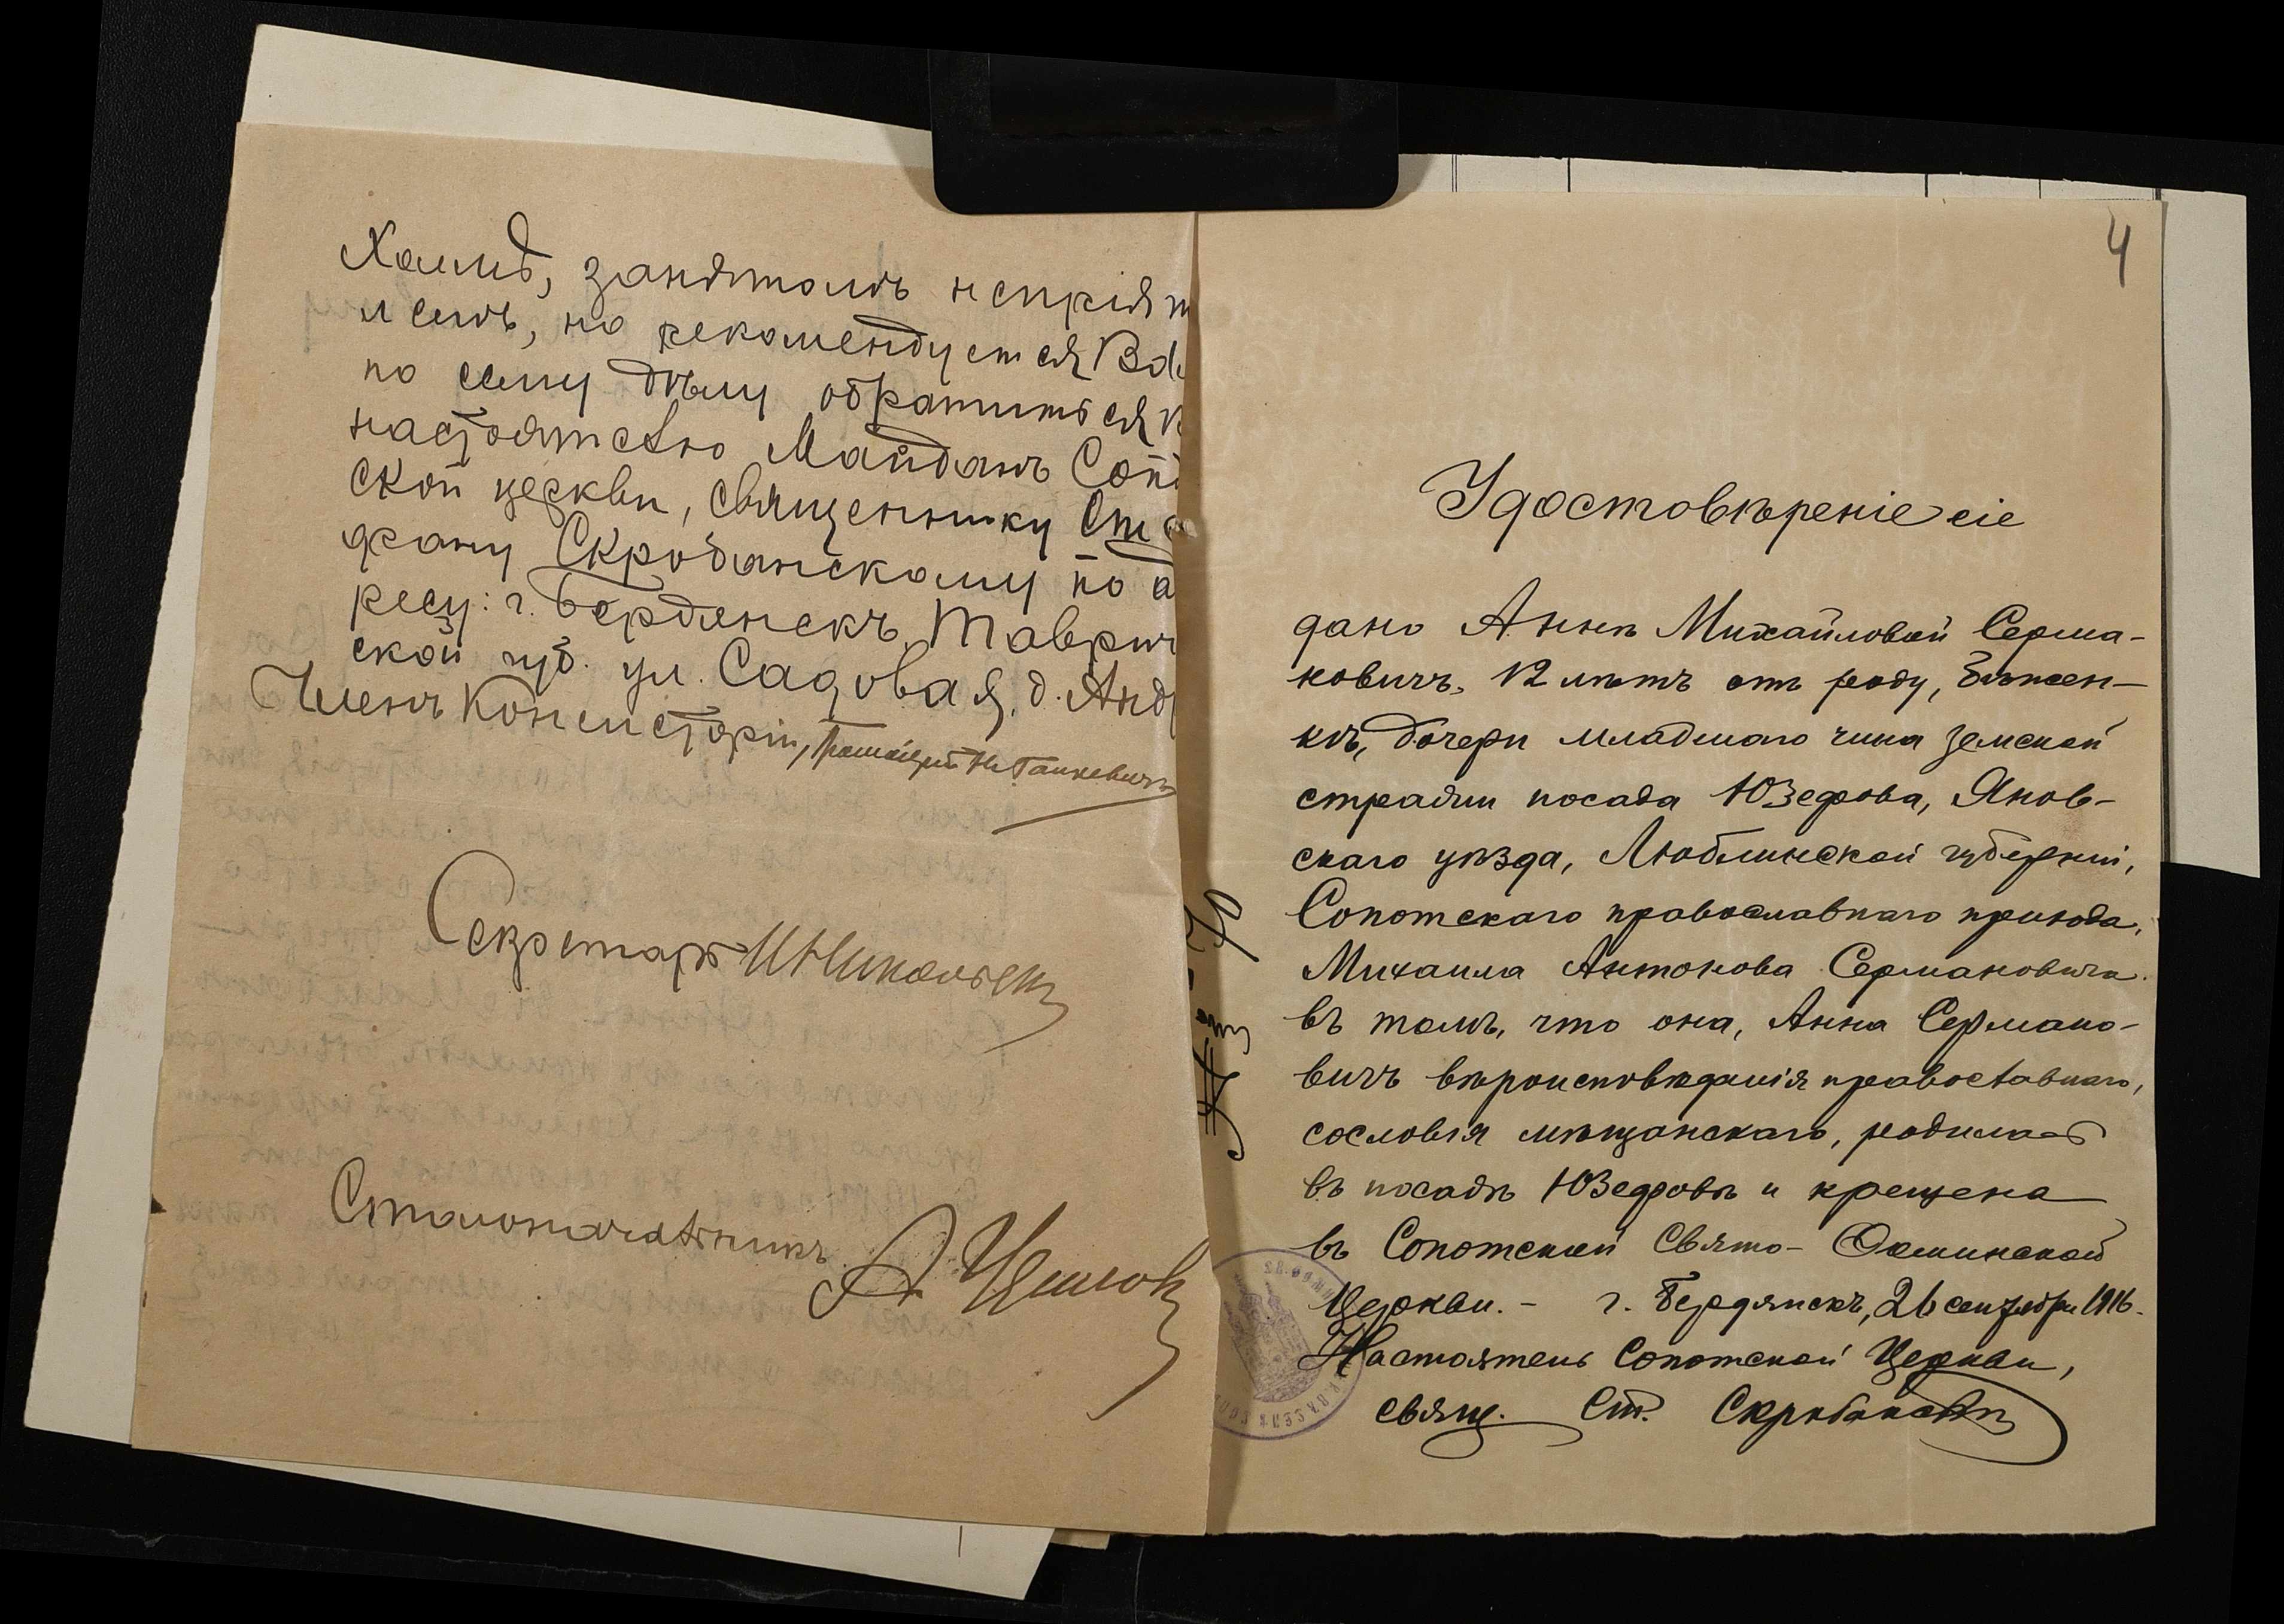 Холмѣ, занятомъ непріят
лемъ, но рекомендуется Ва
по сему дѣлу обратиться к
настоятелю Майданъ Соп
ской церкви, священнику Сте
фану Скробанскому по а
ресу: г. Бердянскъ, Таврич
ской губ. ул. Садовая, д. Анд
Членъ Консисторіи,
Секретарь
Столоначальникъ
4
Удостовѣреніе сіе
дано Аннѣ Михайловой Серма-
ковичъ, 12 лѣтъ отъ роду, бѣжен-
кѣ, дочери младшаго чина земской
стражи посада Юзефова, Янов-
скаго уѣзда, Люблинской губерніи,
Сопотскаго православнаго прихода,
Михаила Антонова Сермановича
въ томъ, что она, Анна Сермано-
вичъ вѣроисповѣданія православнаго,
сословія мѣщанскаго, родилась
въ посадѣ Юзефовѣ и крещена
въ Сопотской Свято-
Церкви. - г. Бердянскъ, 26 сентября 1916.
Настоятель Сопотской Церкви,
свящ. Ст. Скробанскій